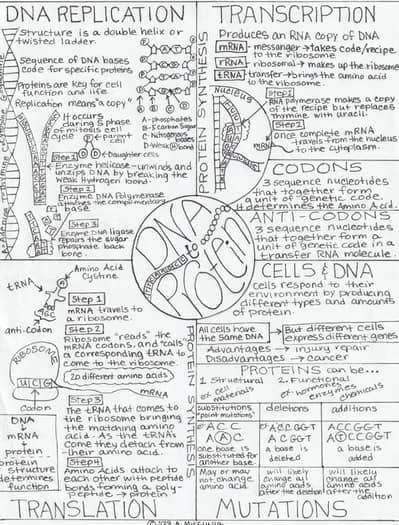 DNA REPLICATION
Structure is a double helix or
twisted ladder.
Sequence of DNA bases
code for specific proteins
Proteins are key for cell
function and life.
Replication means "a copy"
It occurs
during S phase
of mitosis cell
cycle
parent
cell
daughter cells
A-phosphates
B-5 carbon sugar
C-Nitrogenous
bases
D-Weak H bond
Step 1
Enzyme helicase-unwinds and
unzips DNA by breaking the
weak Hydrogen bond.
Step 2
Enzyme DNA Polymerase
attaches the complimentary
base
Step 3
Enzyme DNA ligase
repairs the sugar
phosphate back
bone.
PROTEIN SYNTHESIS
TRANSCRIPTION
Produces an RNA copy of DNA
mRNA messenger → takes code/recipe
to the ribosome.
rRNA ribosomal → makes up the ribosome
tRNA transfer → brings the amino acid
to the ribosome.
Nucleus
Step 1
RNA polymerase makes a copy
of the recipe but replaces
thymine with uracil.
Step 2
Once complete mRNA
travels from the nucleus
to the cytoplasm.
CODONS
3 sequence nucleotides
that together form
a unit of "genetic code"
determines the Amino Acid.
ANTI-CODONS
3 sequence nucleotides
that together form a
unit of genetic code in a
transfer RNA molecule.
DNA
to
Protein
CELLS & DNA
Cells respond to their
environment by producing
different types and amounts
of protein.
All cells have
the SAME DNA
But different cells
express different genes
Advantages → injury repair
Disadvantages → cancer
PROTEINS can be...
1 Structural
ex cell
materials
2. Functional
ex hormones
enzymes
chemicals
substitutions
"point mutations"
deletions
additions
ACC
A A C
one base is
substituted for
another base.
ACCGGT
ACGGT
a base is
deleted
ACCGGT
ATCCGGT
a base is
added
May or may
not change
amino acid.
will likely
change all
amino acids
after the deletion
will likely
change all
amino acids
after the
addition
MUTATIONS
Amino Acid
Cystine
tRNA
anti-codon
RIBOSOME
UCG
Codon
Step 1
mRNA travels to
a ribosome.
Step 2
Ribosome "reads" the
mRNA codons, and "calls"
a corresponding tRNA to
come to the ribosome.
20 different amino acids
mRNA
Step 3
The tRNA that comes to
the ribosome bringing
the matching amino
acid. As the tRNAs
come they detach from
their amino acid.
Step 4
Amino Acids attach to
each other with peptide
bonds forming a poly-
peptide → protein
PROTEIN SYNTHESIS
DNA
mRNA
protein
protein
structure
determines
function
TRANSLATION